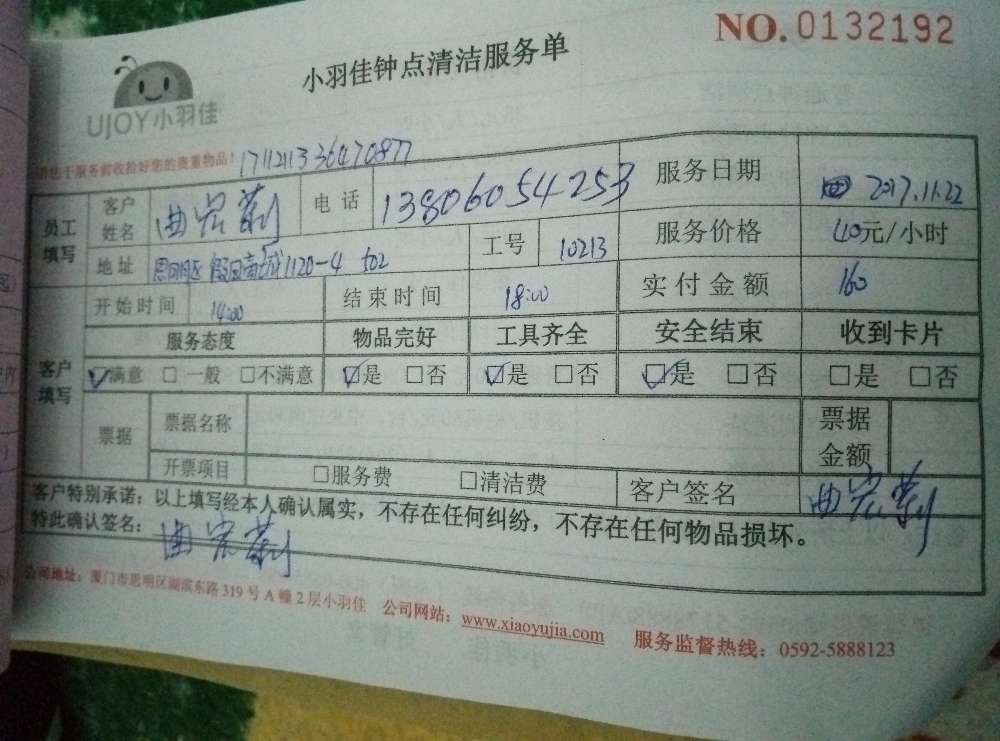 NO.0132192
小羽佳钟点清洁服务单
UJOY小羽佳
请您于服务前收拾好您的贵重物品！ 1711211336470877
员工填写 客户姓名 曲宏 电话 13806054253 服务日期 2017.11.22
地址 思明区 假日商城1120-4 502 工号 10213 服务价格 40元/小时
开始时间 14:00 结束时间 18:00 实付金额 160
客户填写 服务态度 物品完好 工具齐全 安全结束 收到卡片
☑满意 □一般 □不满意 ☑是 □否 ☑是 □否 ☑是 □否 □是 □否
票据 票据名称 票据金额
开票项目 □服务费 □清洁费 客户签名 曲宏
客户特别承诺：以上填写经本人确认属实，不存在任何纠纷，不存在任何物品损坏。
特此确认签名： 曲宏
公司地址：厦门市思明区湖滨东路319号A幢2层小羽佳 公司网站：www.xiaoyujia.com 服务监督热线：0592-5888123